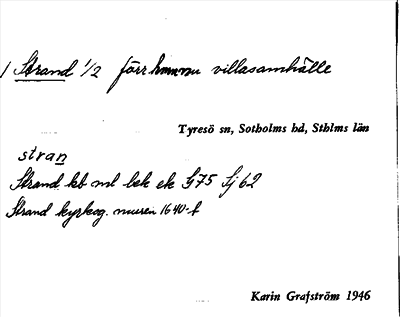 1 Strand 1/2 förr hmmnu villasamhälle
Tyresö sn, Sotholms hd, Sthlms län
stran
Strand kb ml bek ek G75 Sj 62
Strand kyrkog. muren 1640-t
Karin Grafström 1946